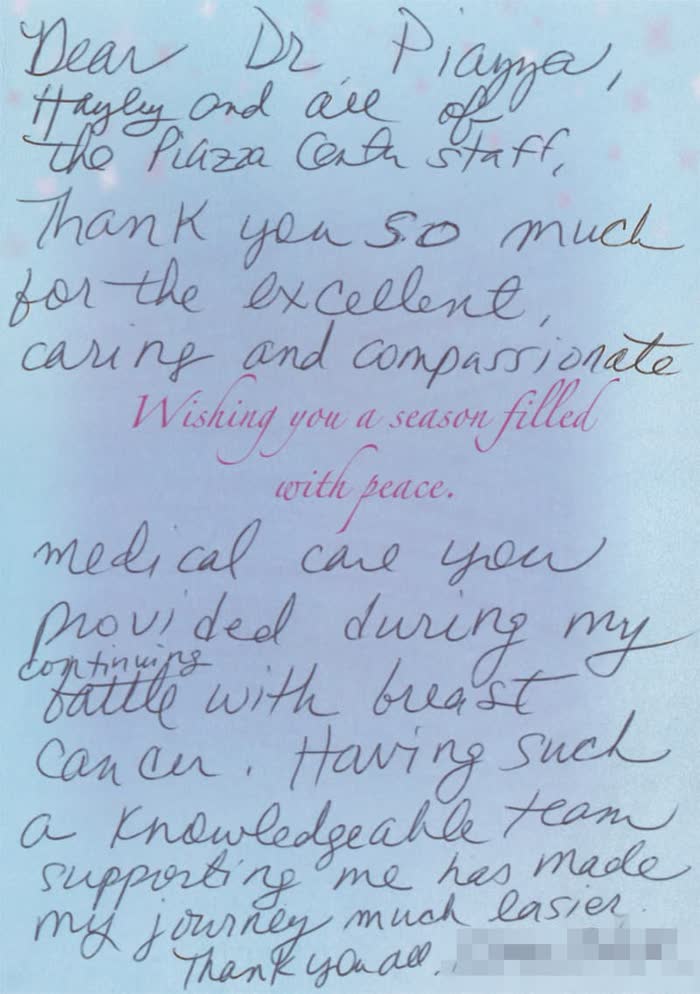 Dear Dr Piazza,
Hayley and all of
the Piazza Center staff,
Thank you so much
for the excellent,
caring and compassionate
Wishing you a season filled
with peace.
medical care you
provided during my
continuing
battle with breast
cancer. Having such
a knowledgeable team
supporting me has made
my journey much easier.
Thank you all.